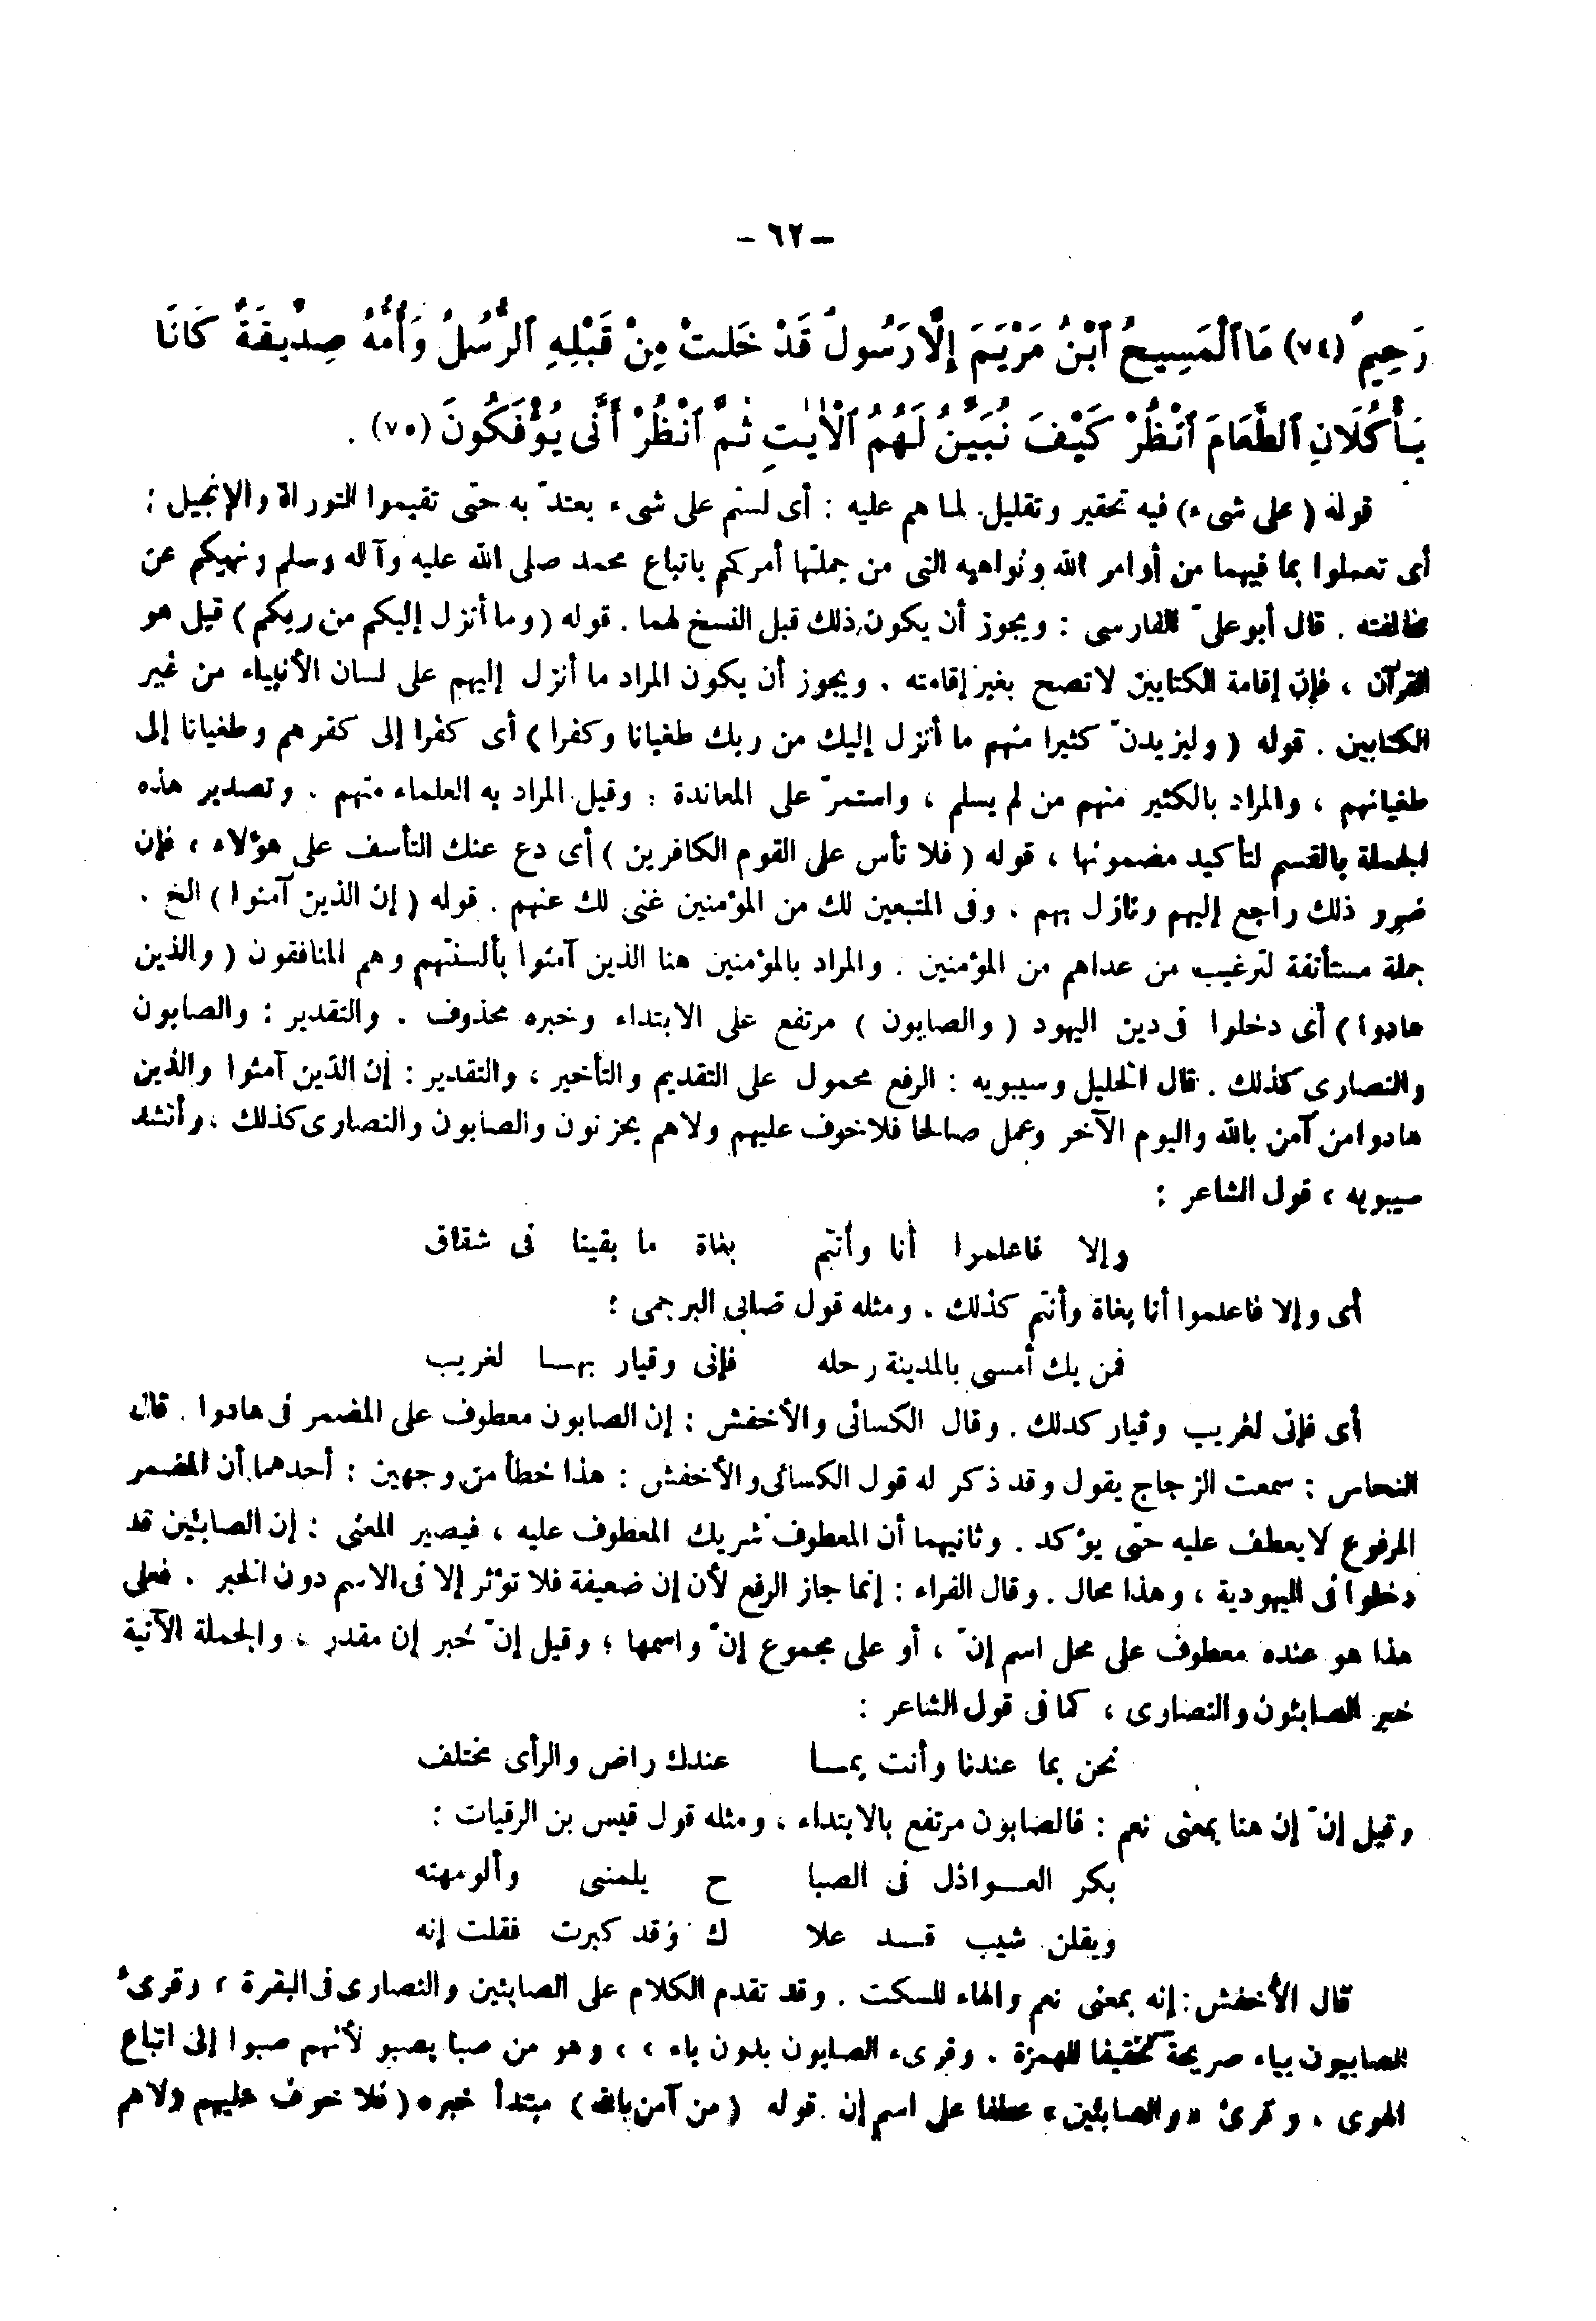 – ٦٢ –
رَحِيمٌ (٧٤) مَا ٱلْمَسِيحُ ٱبْنُ مَرْيَمَ إِلَّا رَسُولٌ قَدْ خَلَتْ مِنْ قَبْلِهِ ٱلرُّسُلُ وَأُمُّهُ صِدِّيقَةٌ كَانَا
يَأْكُلَانِ ٱلطَّعَامَ ٱنْظُرْ كَيْفَ نُبَيِّنُ لَهُمُ ٱلْأَيٰتِ ثُمَّ ٱنْظُرْ أَنَّى يُؤْفَكُونَ (٧٥) .
قوله ( على شىء) فيه تحقير وتقليل لما هم عليه : أى لستم على شىء يعتدّ به حتى تقيموا التوراة والإنجيل :
أى تعملوا بما فيهما من أوامر الله ونواهيه التى من جملتها أمركم باتباع محمد صلى الله عليه وآله وسلم ونهيكم عن
مخالفته . قال أبو علىّ الفارسى : ويجوز أن يكون ذلك قبل النسخ لهما . قوله (وما أنزل إليكم من ربكم) قيل هو
القرآن ، فإن إقامة الكتابين لا تصح بغير إقامته . ويجوز أن يكون المراد ما أنزل إليهم على لسان الأنبياء من غير
الكتابين . قوله ( وليزيدنّ كثيرا منهم ما أنزل إليك من ربك طغيانا وكفرا ) أى كفرا إلى كفرهم وطغيانا إلى
طغيانهم ، والمراد بالكثير منهم من لم يسلم ، واستمرّ على المعاندة : وقيل المراد به العلماء منهم . وتصدير هذه
الجملة بالقسم لتأكيد مضمونها ، قوله ( فلا تأس على القوم الكافرين ) أى دع عنك التأسف على هؤلاء ، فإن
ضرر ذلك راجع إليهم ونازل بهم ، وفى المتبعين لك من المؤمنين غنى لك عنهم . قوله ( إن الذين آمنوا ) الخ .
جملة مستأنفة لترغيب من عداهم من المؤمنين . والمراد بالمؤمنين هنا الذين آمنوا بألسنتهم وهم المنافقون ( والذين
هادوا ) أى دخلوا فى دين اليهود ( والصابون ) مرتفع على الابتداء وخبره محذوف . والتقدير : والصابون
والنصارى كذلك . قال الخليل وسيبويه : الرفع محمول على التقديم والتأخير ، والتقدير : إن الذين آمنوا والذين
هادوا من آمن بالله واليوم الآخر وعمل صالحا فلا خوف عليهم ولا هم يحزنون والصابون والنصارى كذلك ، وأنشد
سيبويه ، قول الشاعر :
وإلا فاعلموا أنا وأنتم بغاة ما بقينا فى شقاق
أى وإلا فاعلموا أنا بغاة وأنتم كذلك . ومثله قول ضابى البرجمى :
فمن يك أمسى بالمدينة رحله فإنى وقيار بهـا لغريب
أى فإنى لغريب وقيار كدلك . وقال الكسائى والأخفش : إن الصابون معطوف على المضمر فى هادوا . قال
النحاس : سمعت الزجاج يقول وقد ذكر له قول الكسائى والأخفش : هذا خطأ من وجهين : أحدهما أن المضمر
المرفوع لا يعطف عليه حتى يؤكد . وثانيهما أن المعطوف شريك المعطوف عليه ، فيصير المعنى : إن الصابئين قد
دخلوا فى اليهودية ، وهذا محال . وقال الفراء : إنما جاز الرفع لأن إن ضعيفة فلا تؤثر إلا فى الاسم دون الخبر . فعلى
هذا هو عنده معطوف على محل اسم إنّ ، أو على مجموع إنّ واسمها ؛ وقيل إنّ خبر إن مقدر ، والجملة الآتية
خبر الصابئون والنصارى ، كما فى قول الشاعر :
نحن بما عندنا وأنت بمـا عندك راض والرأى مختلف
وقيل إنّ إن هنا بمعنى نعم : فالصابون مرتفع بالابتداء ، ومثله قول قيس بن الرقيات :
بكر العـواذل فى الصبا ح يلمننى وألومهنه
ويقلن شيب قـد علا ك وقد كبرت فقلت إنه
قال الأخفش : إنه بمعنى نعم والهاء للسكت . وقد تقدم الكلام على الصابئين والنصارى فى البقرة ، وقرئ
الصابيون بياء صريحة تخفيفا للهمزة . وقرىء الصابون بدون ياء ، ، وهو من صبا يصبو لأنهم صبوا إلى اتباع
الهوى ، وقرئ « والصابئين » عطفا على اسم إن . قوله ( من آمن بالله ) مبتدأ خبره ( فلا خوف عليهم ولا هم